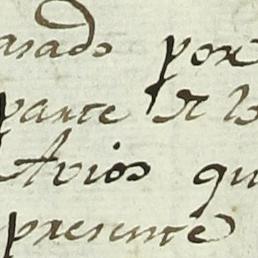 asado por
parte de lo
Avios qu
presente